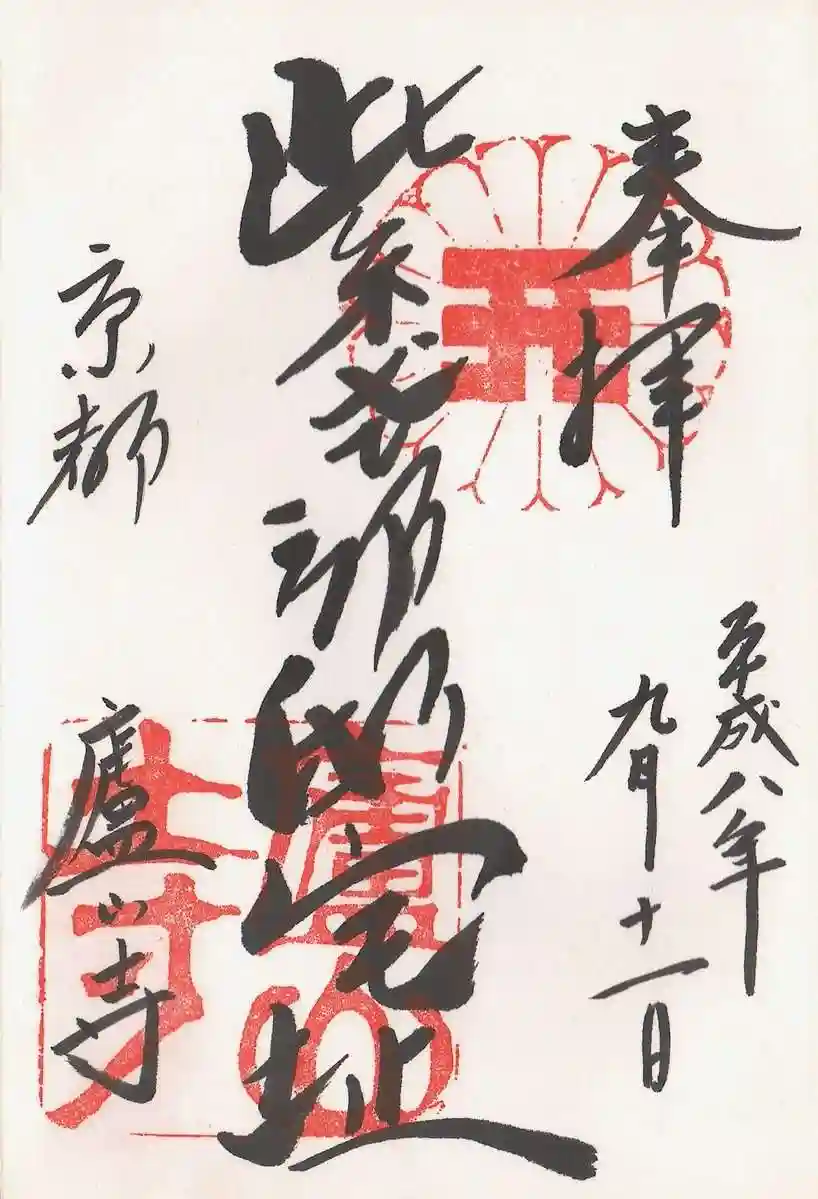 奉拝
平成八年
九月十一日
紫式部邸宅址
京都
廬山寺
廬山寺